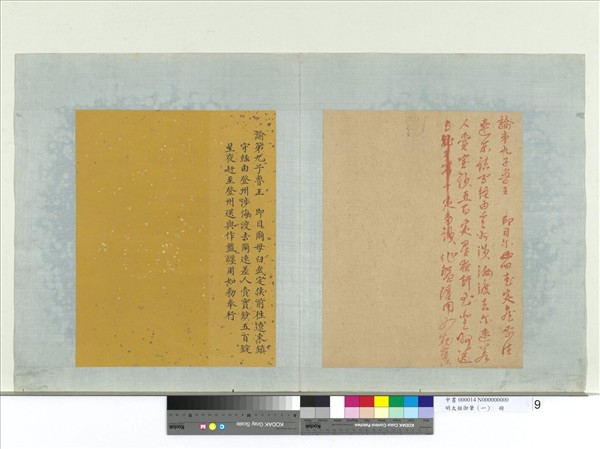 諭第九子魯王 即目尔母舅武定侯前往
遼東鎮守經由登州涉海渡去尔速差
人賫寶鈔五百定星夜赶至登州送
与作盤纏用如勑奉行
諭第九子魯王 即目爾母舅武定侯前往遼東鎮
守經由登州涉海渡去爾速差人賫寶鈔五百錠
星夜赶至登州送與作盤纏用如勑奉行
KODAK Gray Scale
C Y M
Kodak
KODAK Color Control Patches
中書 000014 N000000000
明太祖御筆（一） 冊
9